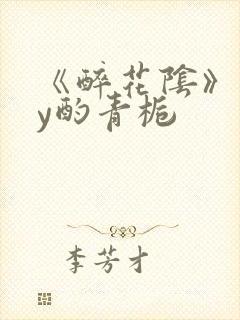 《醉花陰》
y酌青梔
李芳才